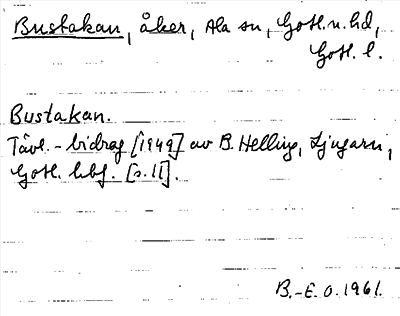 Bustakan, åker, Ala sn, Gotl. n. hd,
Gotl. l.
Bustakan.
Tävl. - bidrag [1949] av B. Helling, Ljugarn,
Gotl. hbf. [s. 11].
B.-E. O. 1961.